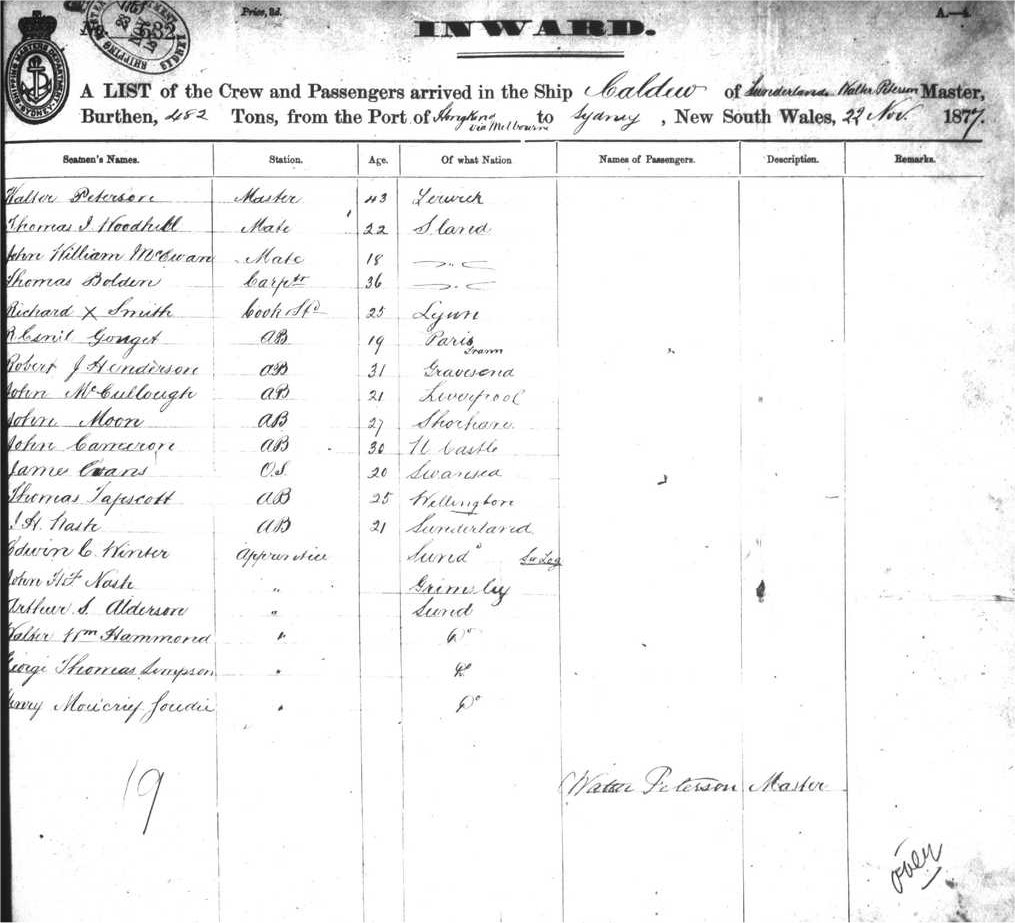 Price, 2d. A.—4
INWARD.
A LIST of the Crew and Passengers arrived in the Ship Caldew of Sunderland Walter Peterson Master,
Burthen, 482 Tons, from the Port of HongKong via Melbourne to Sydney, New South Wales, 22 Nov. 1877.
Seamen's Names. Station. Age. Of what Nation Names of Passengers. Description. Remarks.
Walter Peterson Master 43 Lerwick
Thomas J Woodhill Mate 22 S land
John William McEwan Mate 18 "
Thomas Bolden Carptr 36 "
Richard X Smith Cook Std 25 Lynn
AB 19 Paris
Robert J Henderson AB 31 Gravesend
John McCullough AB 21 Liverpool
John Moon AB 27
John Cameron AB 30 N Castle
James Evans O.S. 20 Swansea
Thomas Tapscott AB 25 Wellington
J H Nash AB 21 Sunderland
Edwin C. Winter Apprentice Sund
John Nash " Grimsby
Arthur S. Alderson " Sund
Walter Wm Hammond " Do
George Thomas Simpson " Do
Henry Goudie " Do
19
Walter Peterson Master
over